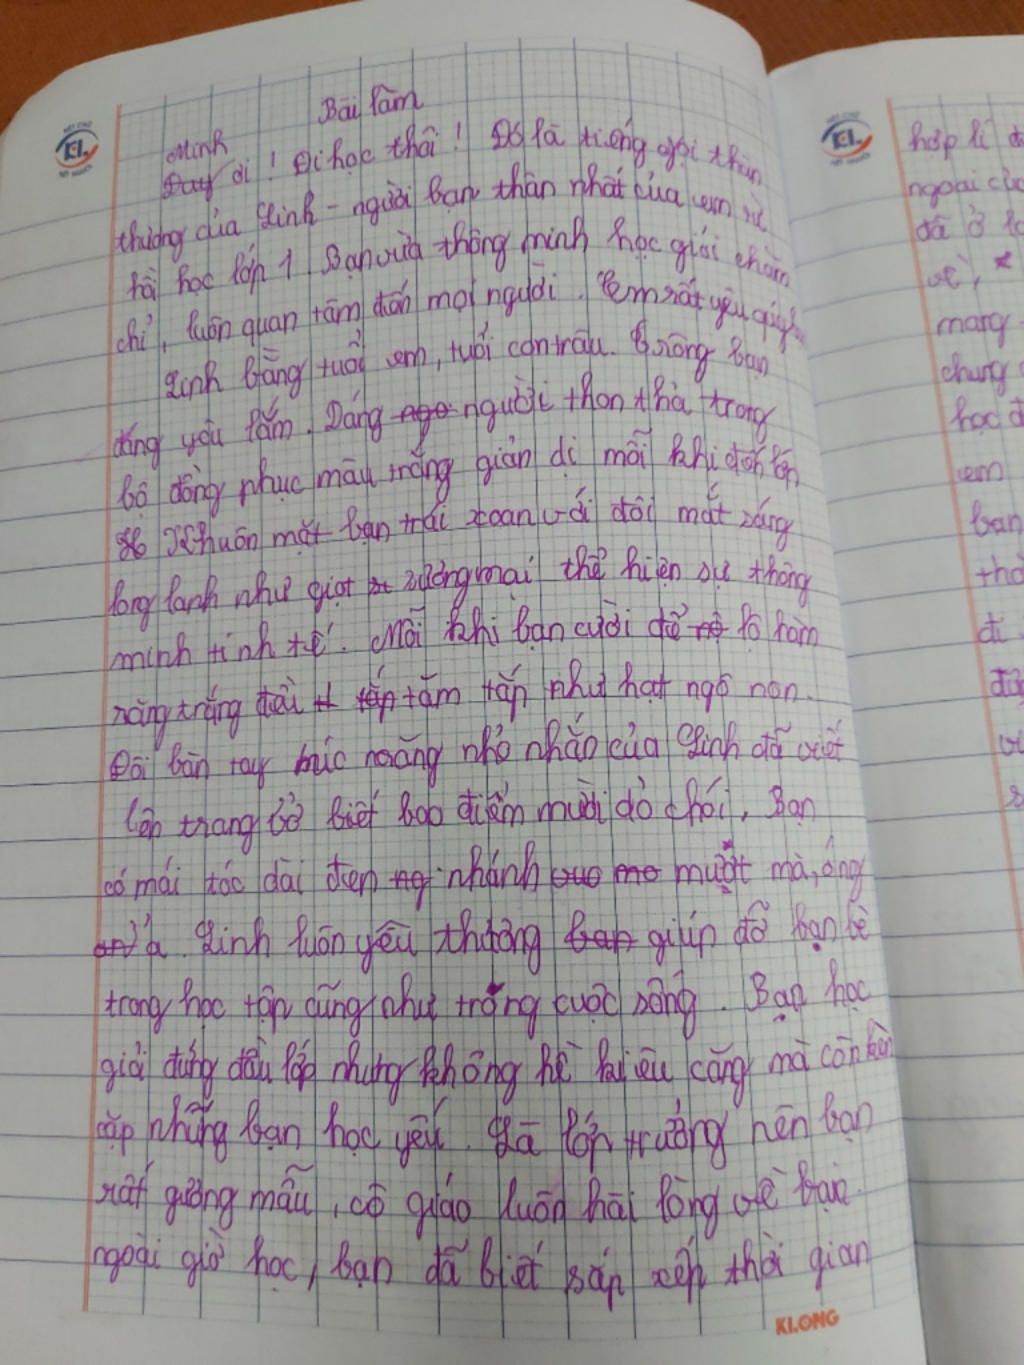 Bài làm
Minh
Duy ơi ! Đi học thôi ! Đó là tiếng gọi thân
thương của Linh - người bạn thân nhất của em từ
hồi học lớp 1 Bạn vừa thông minh học giỏi chăm
chỉ, luôn quan tâm đến mọi người. Em rất yêu quý
Linh bằng tuổi em, tuổi con trâu. Trông bạn
đáng yêu lắm. Dáng người thon thả trong
bộ đồng phục màu trắng giản dị mỗi khi đến lớp
Khuôn mặt bạn trái xoan với đôi mắt sáng
long lanh như giọt sương mai thể hiện sự thông
minh tinh tế. Mỗi khi bạn cười để lộ hàm
răng trắng đều tăm tắp như hạt ngô non.
Đôi bàn tay múc nhỏ nhắn của Linh đã viết
lên trang vở biết bao điểm mười đỏ chói. Bạn
có mái tóc dài đen nhánh mượt mà, óng
ả. Linh luôn yêu thương giúp đỡ bạn bè
trong học tập cũng như trong cuộc sống. Bạn học
giỏi đứng đầu lớp nhưng không hề kiêu căng mà còn kèm
cặp những bạn học yếu. Là lớp trưởng nên bạn
rất gương mẫu, cô giáo luôn hài lòng về bạn.
ngoài giờ học, bạn đã biết sắp xếp thời gian
KLONG
hợp lí
ngoài
đã ở
về,
mang
chung
học
em
bạn
đi